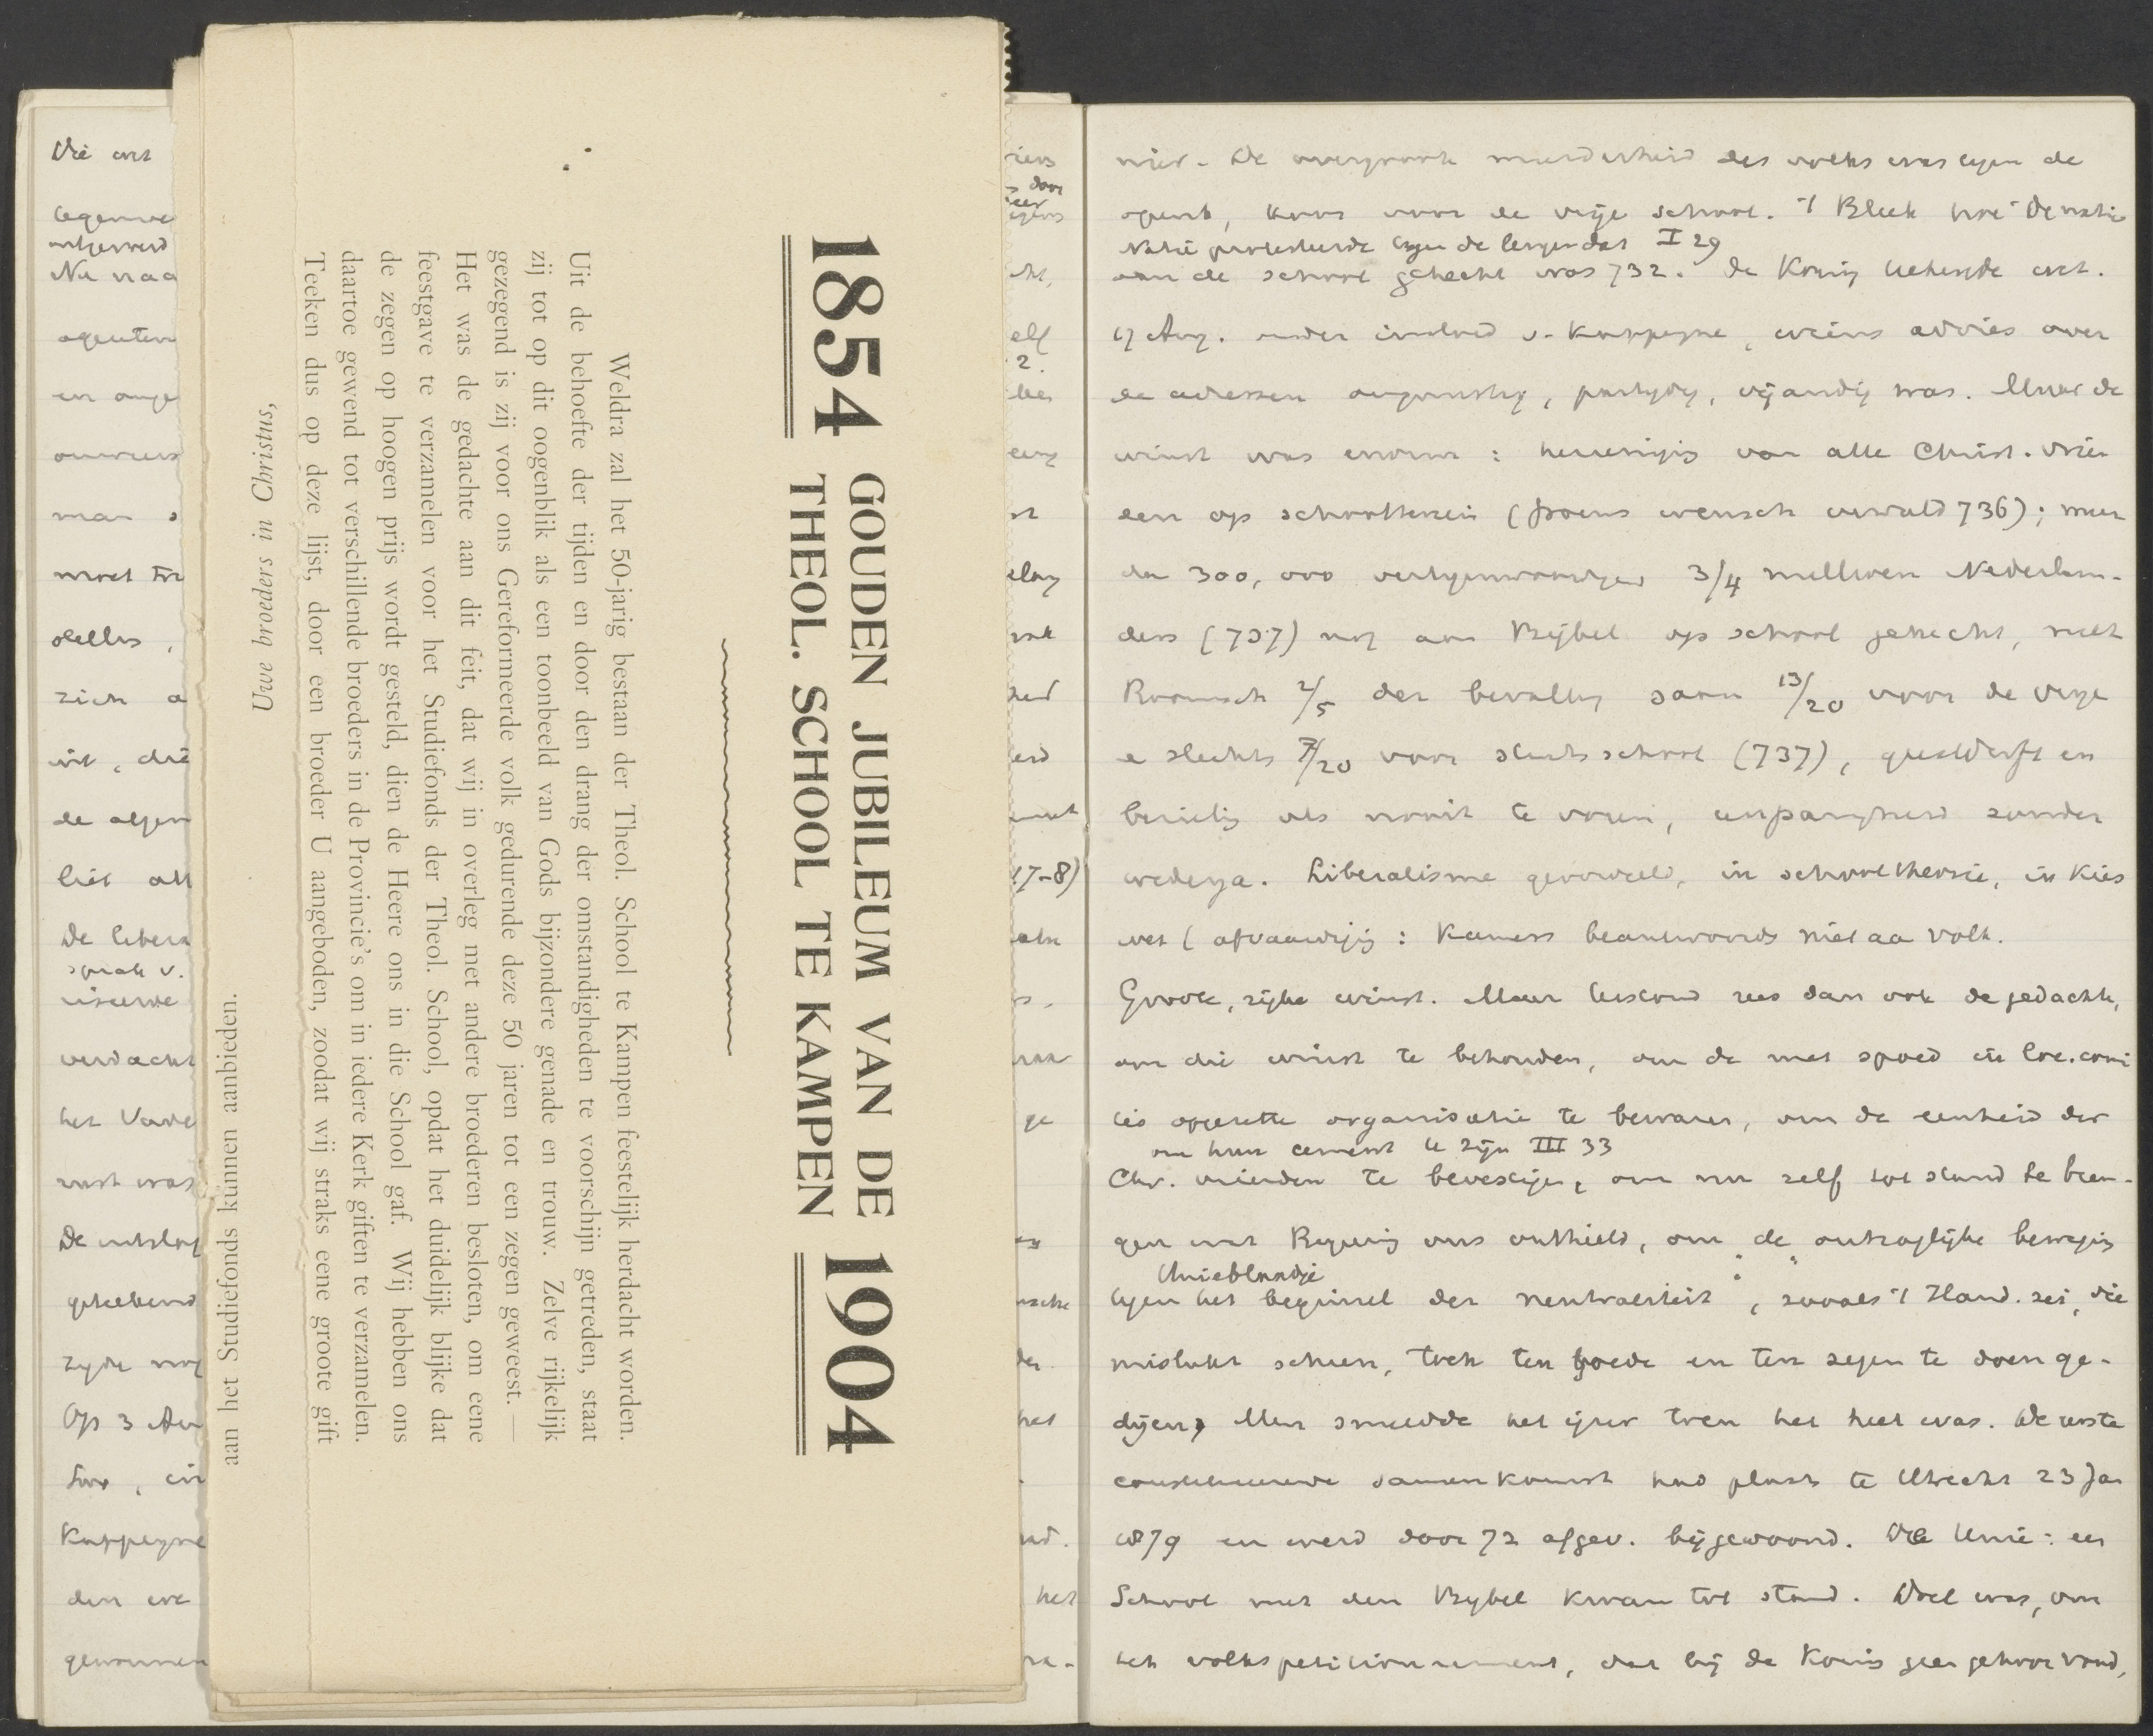 Die wet
tegenwe
ontzenwd
Nu naa
agenten
en ange
man s
moet tre
zich a
uit, die
de algem
liet all
De libera
sprak v.
verdacht
het Vade
rust was
zyde nog
Op 3 Au
Kappeyne
den we
gewonnen
1854 GOUDEN JUBILEUM VAN DE 1904
THEOL. SCHOOL TE KAMPEN
Weldra zal het 50-jarig bestaan der Theol. School te Kampen feestelijk herdacht worden.
Uit de behoefte der tijden en door den drang der omstandigheden te voorschijn getreden, staat
zij tot op dit oogenblik als een toonbeeld van Gods bijzondere genade en trouw. Zelve rijkelijk
gezegend is zij voor ons Gereformeerde volk gedurende deze 50 jaren tot een zegen geweest. —
Het was de gedachte aan dit feit, dat wij in overleg met andere broederen besloten, om eene
feestgave te verzamelen voor het Studiefonds der Theol. School, opdat het duidelijk blijke dat
de zegen op hoogen prijs wordt gesteld, dien de Heere ons in die School gaf. Wij hebben ons
daartoe gewend tot verschillende broeders in de Provincie's om in iedere Kerk giften te verzamelen.
Teeken dus op deze lijst, door een broeder U aangeboden, zoodat wij straks eene groote gift
aan het Studiefonds kunnen aanbieden.
Uw broeders in Christus,
door
elf
2.
17-8)
ge
het
het
niet. De overgroote meerderheid des volks was tegen de
openb, koos voor de vrije school. 't Bleek hoe de natie
Natie protesteerde tegen de leugen dat I 29
aan de school gehecht was 732. De Koning bekende wet.
17 Aug. onder invloed v. Kappeyne, wiens advies over
de adressen ongunstig, partydig, vijandig was. Maar de
winst was enorm: hereeniging van alle Christ. vrien
den op schoolterrein (Groens wensch vervuld 736); meer
dan 300,000 vertegenwoordigend 3/4 millioen Nederlan-
ders (737) nog aan Bijbel op school gehecht, met
Roomsch 2/5 der bevolking saam 13/20 voor de vrije
e slechts 7/20 voor staatsschool (737), geestdrift en
bezieling als nooit te voren, campagne zonder
wederga. Liberalisme geoordeeld, in schooltheorie, in kies
wet (afvaardiging: Kamers beantwoordt niet aan volk.
Groote, rijke winst. Maar terstond rees dan ook de gedachte,
om die winst te behouden, om de met spoed in loc. comi
tés opgerichte organisatie te bewaren, om de eenheid der
om hun cement te zijn III 33
Chr. vrienden te bevestigen, om nu zelf tot stand te bren-
gen wat Regering ons onthield, om de "ontzaglijke beweging
Unieblaadje
tegen het beginsel der neutraliteit", zooals 't Hand. zei, die
mislukt scheen, toch ten goede en ten zegen te doen ge-
dijen. Men smeedde het ijzer toen het heet was. De eerste
constitueerende samenkomst had plaats te Utrecht 23 Jan
1879 en werd door 72 afgev. bijgewoond. De Unie: een
School met den Bybel kwam tot stand. Doel was, om
het volkspetitionnement, dat bij de Koning geen gehoor vond,